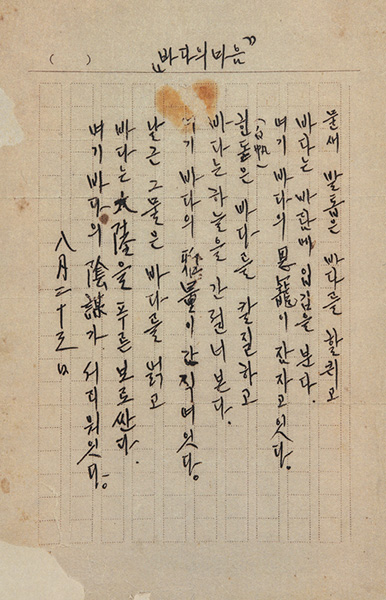 ( )
"바다의마음"
물새 발톱은 바다를 할퀴고
바다는 바람에 입김을 분다.
여기 바다의 恩寵이 잠자고잇다.
흰돛(白帆)은 바다를 칼질하고
바다는하늘을 간질너본다.
여기 바다의 雅量이간직여잇다.
날근 그물은 바다를 얽고
바다는 大陸을 푸른 보로싼다.
여기 바다의 陰謀가 서리워잇다.
八月二十三日